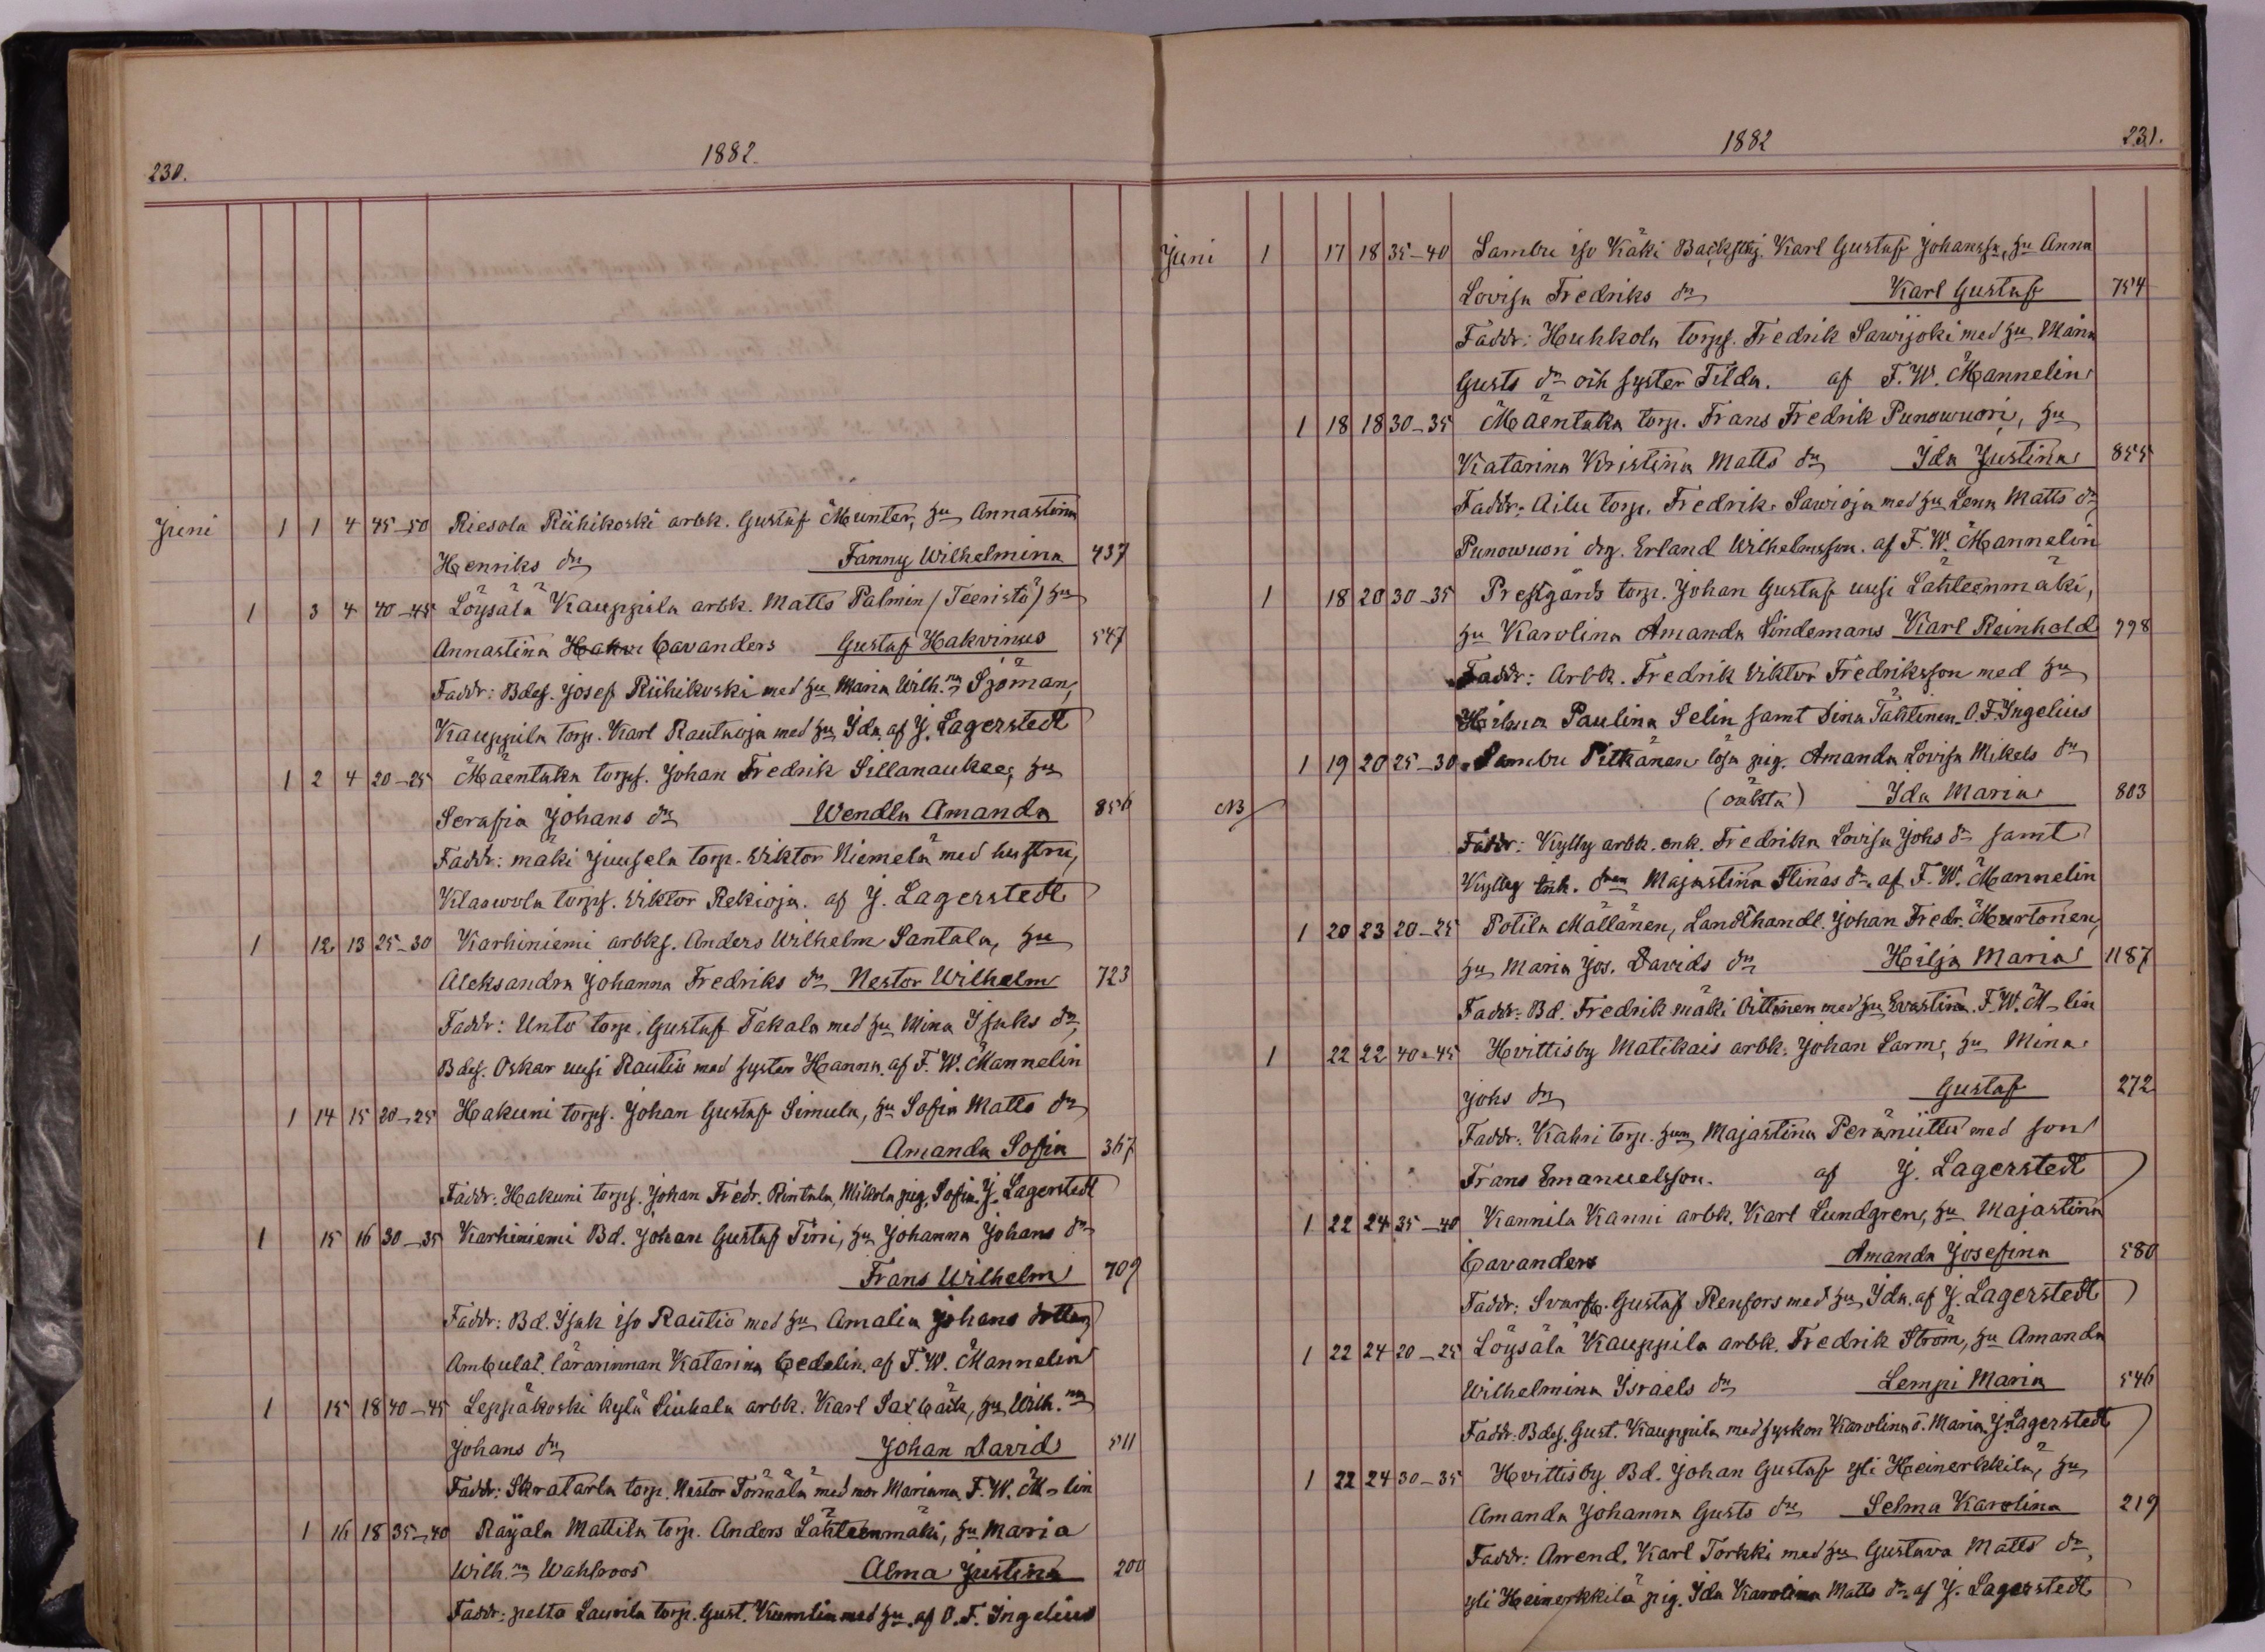 230.
1882.
Juni 1 1 4 45-50 Riesola Riihikoski arbk. Gustaf Munter, hu Annastina
Henriks dr Fanny Wilhelmina 437
1 3 4 40-45 Löysälä Kauppila arbk. Matts Palmin (Teeristö) hu
Annastina Cavanders Gustaf Hakvinus 547
Faddr: Bdes. Josef Riihikoski med hu Maria Wilh.na Sjöman,
Kauppila torp. Karl Rautaoja med hu Ida. af J. Lagerstedt
1 2 4 20-25 Mäentaka torps. Johan Fredrik Sillanaukee, hu
Serafia Johans dr Wendla Amanda 856
Faddr: mäki Juusela torp. Wiktor Niemelä med hustru,
Klaawola torps. Wiktor Rekioja. af J. Lagerstedt
1 12 13 25-30 Karhiniemi arbks. Anders Wilhelm Santala, hu
Aleksandra Johanna Fredriks dr Nestor Wilhelm 723
Faddr: Unto torp. Gustaf Takala med hu Mina Isaks dr,
Bdes. Oskar uusi Rautio med syster Hanna. af F. W. Mannelin
1 14 15 20-25 Hakuni torps. Johan Gustaf Simula, hu Sofia Matts dr
Amanda Sofia 367
Faddr: Hakuni torps. Johan Fredr. Rintala, Mikola pig. Sofia. J. Lagerstedt
1 15 16 30-35 Karhiniemi Bd. Johan Gustaf Tirri, hu Johanna Johans dr
Frans Wilhelm 709
Faddr: Bd. Isak iso Rautio med hu Amalia Johans dotter,
Ambulat. lärarinnan Katarina Cedelin. af F. W. Mannelin
1 15 18 40-45 Leppäkoski kylä Liuhala arbk. Karl Saxbäck, hu Wilh.na
Johans dr Johan David 511
Faddr: Skratarla torp. Nestor Törmälä med mor Mariana. F. W. M-lin
1 16 18 35-40 Raijala Mattila torp. Anders Lähteenmäki, hu Maria
Wilh.na Wahlroos Alma Justina 200
Faddr: pelto Laurila torp. Gust. Kumlin med hu. af O. F. Ingelius
1882
231.
Juni 1 17 18 35-40 Sambu iso Käki Backstuj. Karl Gustaf Johanss., hu Anna
Lovisa Fredriks dr Karl Gustaf 754
Faddr: Huhkola torps. Fredrik Sawijoki med hu Maria
Gusts dr och syster Tilda. af F. W. Mannelin
1 18 18 30-35 Mäentaka torp. Frans Fredrik Punowuori, hu
Katarina Kristina Matts dr Ida Justina 855
Faddr: Ailu torp. Fredrik Sawioja med hu Lena Matts dr
Punowuori drg. Erland Wilhelmsson. af F. W. Mannelin
1 18 20 30-35 Prestgårds torp. Johan Gustaf uusi Lähteenmäki,
hu Karolina Amanda Lindemans Karl Reinhold 998
Faddr: Arbk. Fredrik Viktor Fredriksson med hu
Hilma Paulina Selin samt Sina Tähtinen. O. F. Ingelius
1 19 20 25-30 Sambu Pitkänen lösa pig. Amanda Lovisa Mikels dr
NB (oäkta) Ida Maria 803
Faddr: Kylly arbk. enk. Fredrika Lovisa Johs dr samt
Kylly Majastina Stinas dr. af F. W. Mannelin
1 20 23 20-25 Potila Mällänen, Landthandl. Johan Fredr. Murtonen,
hu Maria Jos. Davids dr Hilja Maria 1187
Faddr: Bd. Fredrik mäki Oittinen med hu Evastina. F. W. M-lin
1 22 22 40-45 Hvittisby Matikais arbk. Johan Larm, hu Mina
Johs dr Gustaf 272
Faddr: Kahri torp. hun Majastina Peräniitty med son
Frans Emanuelsson. af J. Lagerstedt
1 22 24 35-40 Kannila Kanni arbk. Karl Lundgren, hu Majastina
Cavanders Amanda Josefina 580
Faddr: Svarfv. Gustaf Renfors med hu Ida. af J. Lagerstedt
1 22 24 20-25 Löysälä Kauppila arbk. Fredrik Ström, hu Amanda
Wilhelmina Israels dr Lempi Maria 546
Faddr: Bdes. Gust. Kauppila med syskon Karolina o. Maria. J. Lagerstedt
1 22 24 30-35 Hvittisby Bd. Johan Gustaf yli Heinerkkilä, hu
Amanda Johanna Gusts dr Selma Karolina 219
Faddr: Arrend. Karl Torkki med hu Gustava Matts dr,
yli Heinerkkilä pig. Ida Karolina Matts dr. af J. Lagerstedt